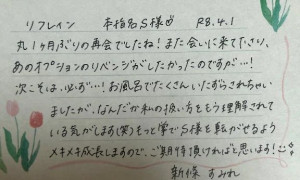 リフレイン 本指名S様♂ R8.4.1
丸1ヶ月ぶりの再会でしたね!また会いに来て下さり、
あのオプションのリベンジがしたかったのですが…!
次こそは、必ず…!お風呂でたくさんいたずらされちゃい
ましたが、なんだか私の扱い方をもう理解されて
いる気がします(笑)もっと掌でS様を転がせるよう
メキメキ成長しますので、ご期待頂ければと思います!
新條 すみれ